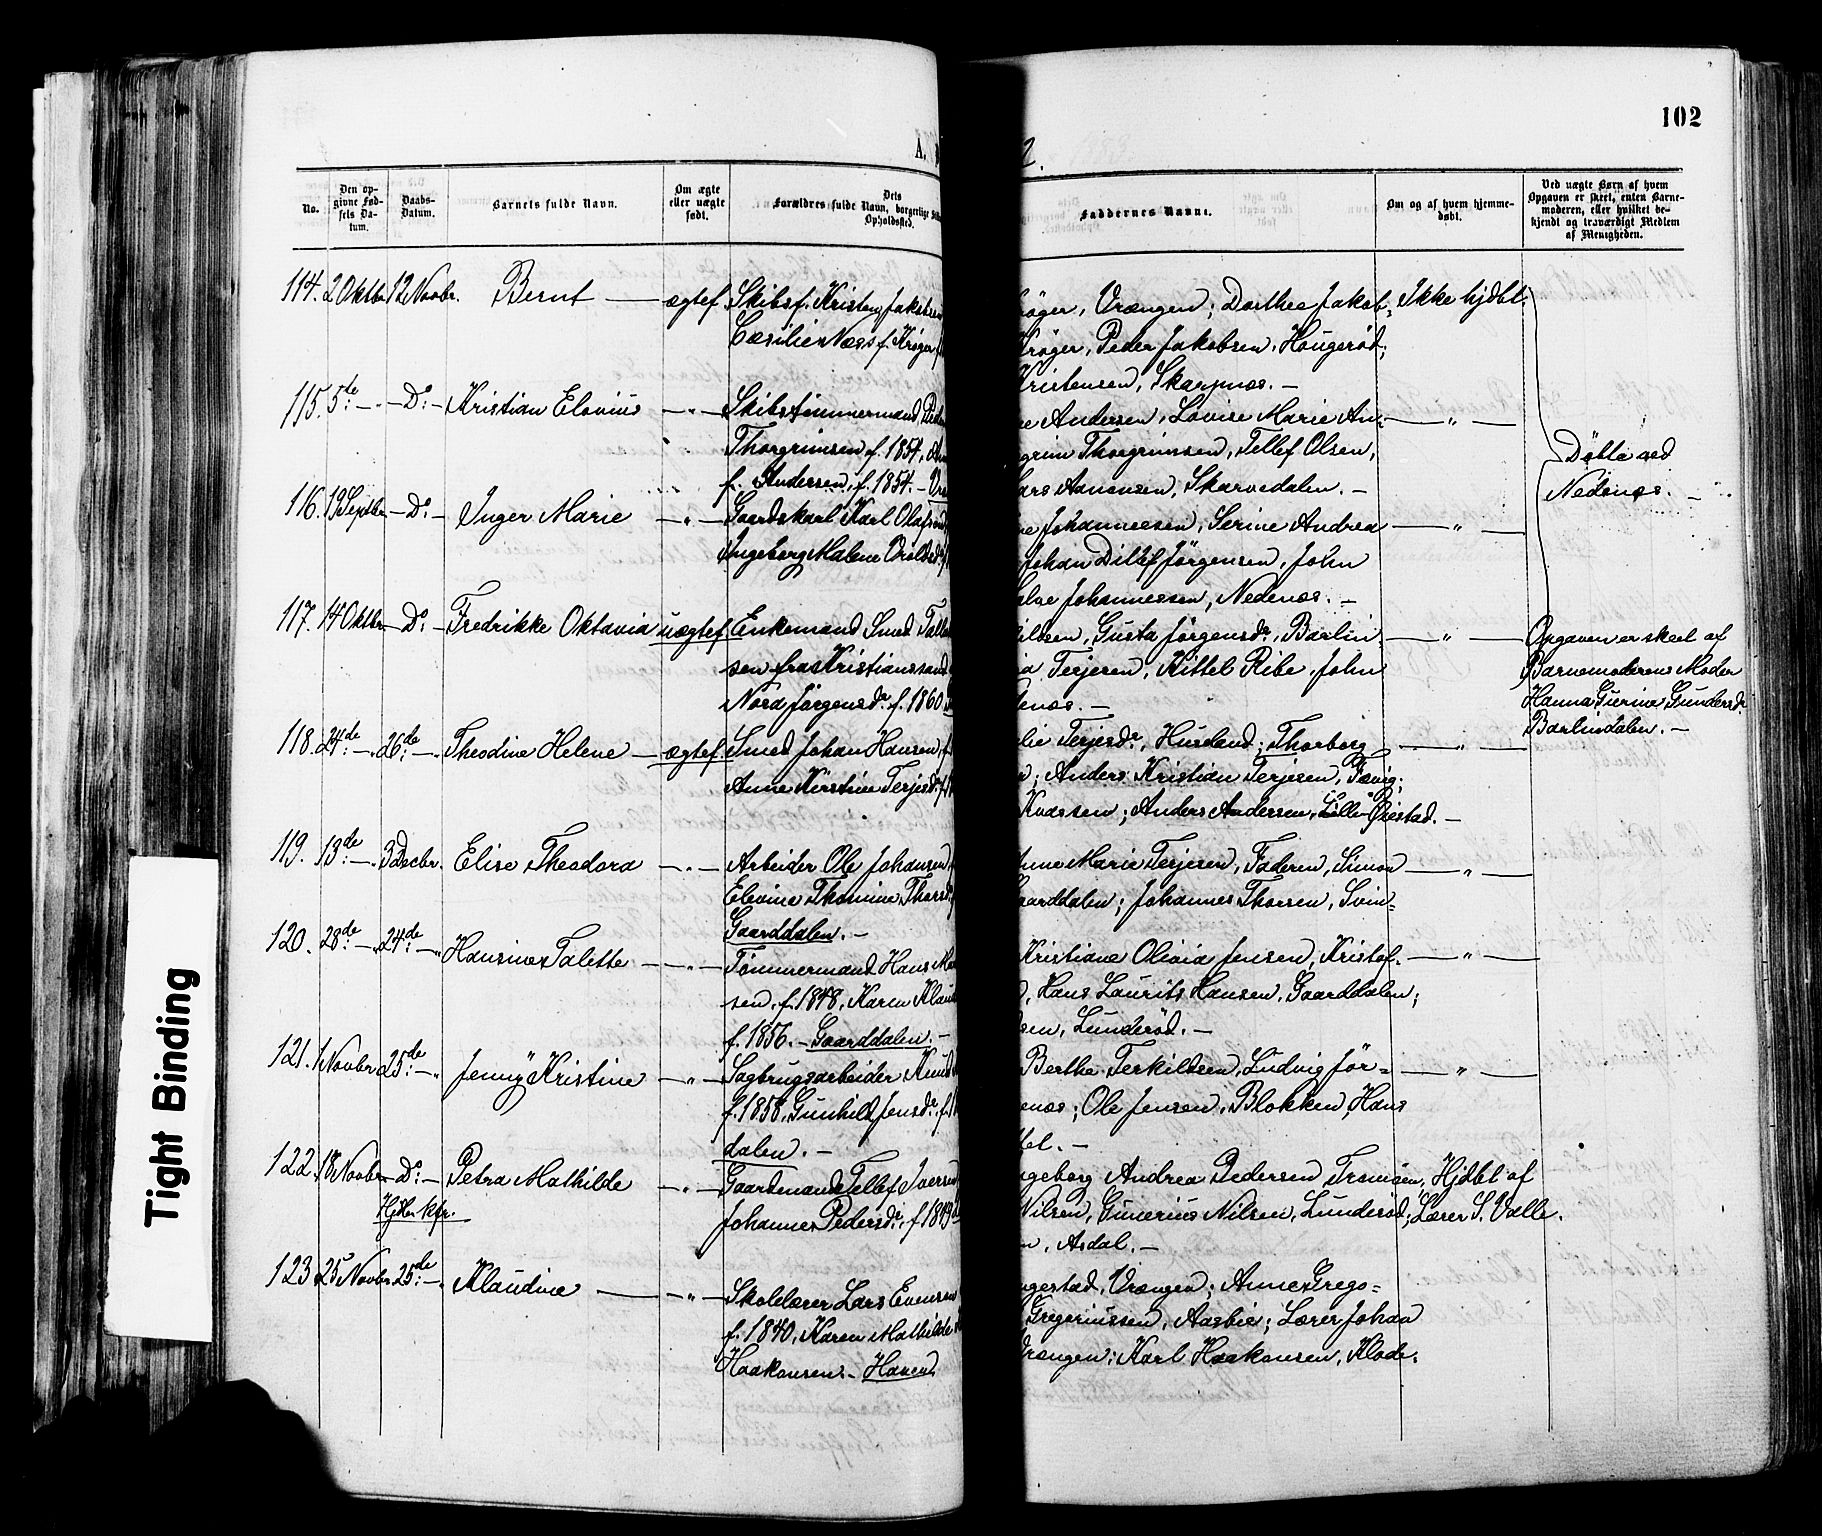 102
A.
2.
No.
Den op-
givne Fød-
sels Da-
tum.
Daabs-
Datum.
Barnets fulde Navn.
Om ægte
eller uægte
født.
Dets
Forældres fulde Navn, borgerlige
Opholdssted.
Faddernes Navne.
Om og af hvem hjemme-
døbt.
Ved uægte Børn af hvem
Opgaven er skeet, enten Barne-
moderen, eller hvilket be-
kjendt og troværdigt Medlem
af Menigheden.
114. 2 Oktbr 12 Novbr. Bernt — ægtef. Skibsf. Kristen Jakobsen
Cæsilie Næss f. Krøger
røger, Vrængen; Dorthea Jakob- Ikke hjdbt.
Krøger, Peder Jakobsen, Hougerød;
Kristensen, Skarpnæs. —
115. 5te — Do — Kristian Elovius — " — Skibstømmermand
Thorgrimsen f. 1854,
f. Andersen, f. 1854. —
Andersen, Lovise Marie An- — " —
grim Thorgrimsen, Tellef Olsen,
Aanonsen, Skarvedalen. —
Døbte ved
Nedenæs. —
116. 19 Septbr. — Do — Inger Marie — " — Gaardskarl Karl Olafsen
Ingeborg Malene
Johannessen, Serine Andrea — " —
Johan Ditlef Jørgensen, John
Johannessen, Nedenæs. —
117. 14 Oktbr. — Do — Fredrikke Oktavia uægtef. Enkemand Smed
sen fra Kristianssand
Nora Jørgensdr. f. 1860.
ilsen, Gusta Jørgensdr., Barlin- — " —
Terjesen, Kittel Ribe, John
enæs. —
Opgaven er skeet af
Barnemoderens Moder
Hanna Gurine Gundersdr.
Barlindalen. —
118. 24de — 26de — Theodine Helene — ægtef. Smed Johan Hansen
Anne Kirstine Terjesdr.
lie Terjesdr., Huseland; Thorborg — " —
Anders Kristian Terjesen, Fævig;
Knudsen; Anders Andersen, Lille-Øiestad. —
119. 13de — 3 Decbr. Elise Theodora — " — Arbeider Ole Johansen
Elevine Thomine Thorsdr.
Gaarddalen. —
Anne Marie Terjesen, Faderen, Simon — " —
Gaarddalen; Johannes Thorsen, Svin-
120. 28de — 24de — Hansine Talette — " — Tømmermand Hans
sen, f. 1848, Karen
f. 1856. — Gaarddalen. —
Kristiane Olivia Jensen, Kristof- — " —
Hans Laurits Hansen, Gaarddalen;
sen, Lunderød. —
121. 1 Novbr 25de — Jenny Kristine — " — Sagbrugsarbeider Knud
f. 1858, Gunhild Jensdr. f.
dalen. —
Berthe Terkildsen, Ludvig Jør- — " —
enæs; Ole Jensen, Blokken; Hans
122. 18 Novbr — Do — Petra Mathilde — " — Gaardmand Tellef Iversen
Hjdbt. kfr.
Johanne Pedersdr., f. 1849
ngeborg Andrea Pedersen Tromøen, Hjdbt af
Nilsen, Gunerius Nilsen, Lunderød; Lærer S. Valle.
Asdal. —
123. 25 Novbr. 25de — Klaudine — " — Skolelærer Lars Evensen
f. 1840, Karen Mathilde
Haakonsen. —
ngestad, Vrængen; Anne Grego-
Gregoriussen, Aasbie; Lærer Johan
Vrængen; Karl Haakonsen, Klode-
Tight Binding